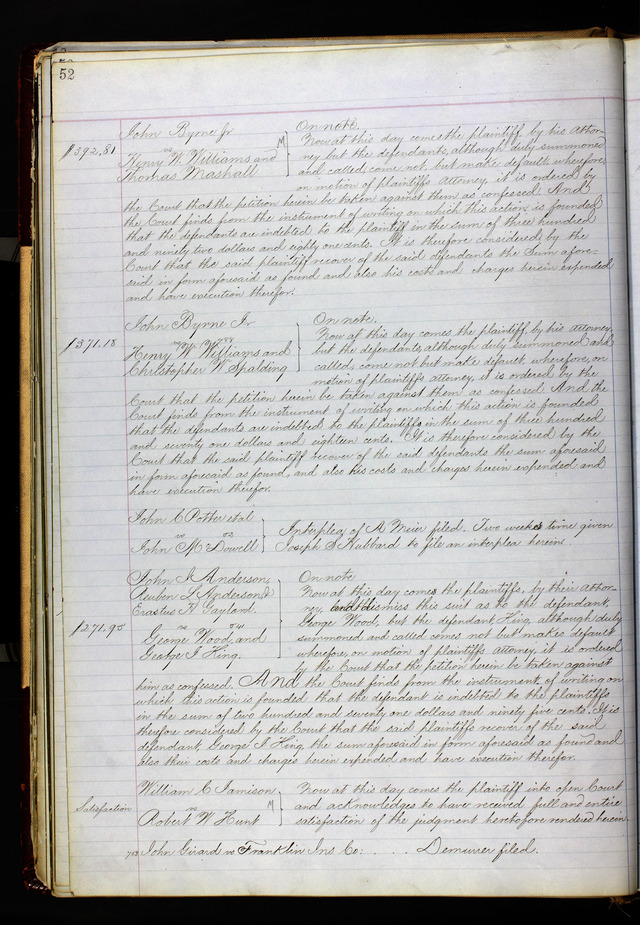 52
John Byrne Jr
vs
Henry W. Williams and
Thomas Mashall
M
$392.81
On note.
Now at this day comes the plaintiff by his attor-
ney but the defendants, although duly summoned
and called, come not but make default wherefore
on motion of plaintiffs attorney it is ordered by
the Court that the petition herein be taken against them as confessed. And
the Court finds from the instrument of writing on which this action is founded
that the defendants are indebted to the plaintiff in the sum of three hundred
and ninety two dollars and eighty one cents. It is therefore considered by the
Court that the said plaintiff recover of the said defendants the sum afore-
said in form aforesaid as found and also his costs and charges herein expended
and have execution therefor.
John Byrne Jr.
vs
Henry W. Williams and
Christopher W. Spalding
$371.18
On note.
Now at this day comes the plaintiff, by his attorney
but the defendants, although duly summoned and
called, come not but make default, wherefore, on
motion of plaintiffs attorney, it is ordered by the
Court that the petition herein be taken against them as confessed. And the
Court finds from the instrument of writing on which this action is founded
that the defendants are indebted to the plaintiffs in the sum of three hundred
and seventy one dollars and eighteen cents. It is therefore considered by the
Court that the said plaintiff recover of the said defendants the sum aforesaid
in form aforesaid as found, and also his costs and charges herein expended and
have execution therefor.
John C Potter et al
vs
John McDowell
Interplea of A Meier filed. Two weeks time given
Joseph S Hubbard to file an interplea herein.
John J. Anderson,
Reuben J. Anderson &
Erastus A. Gaylord.
vs
George Wood, and
George J. King.
$271.95
On note
Now at this day comes the plaintiffs, by their attor-
ney, and dismiss this suit as to the defendant,
George Wood, but the defendant King, although duly
summoned and called comes not but makes default
wherefore, on motion of plaintiffs attorney, it is ordered
by the Court that the petition herein be taken against
him as confessed. And the Court finds from the instrument of writing on
which this action is founded that the defendant is indebted to the plaintiffs
in the sum of two hundred and seventy one dollars and ninety five cents. It is
therefore considered by the Court that the said plaintiffs recover of the said
defendant, George J. King the sum aforesaid in form aforesaid as found and
also their costs and charges herein expended and have execution therefor.
William C Jamison
vs
Robert W Hunt
M
Satisfaction
Now at this day comes the plaintiff into open Court
and acknowledges to have received full and entire
satisfaction of the judgment heretofore rendered herein.
John Girard vs Franklin Ins Co: . . . . Demurrer filed.